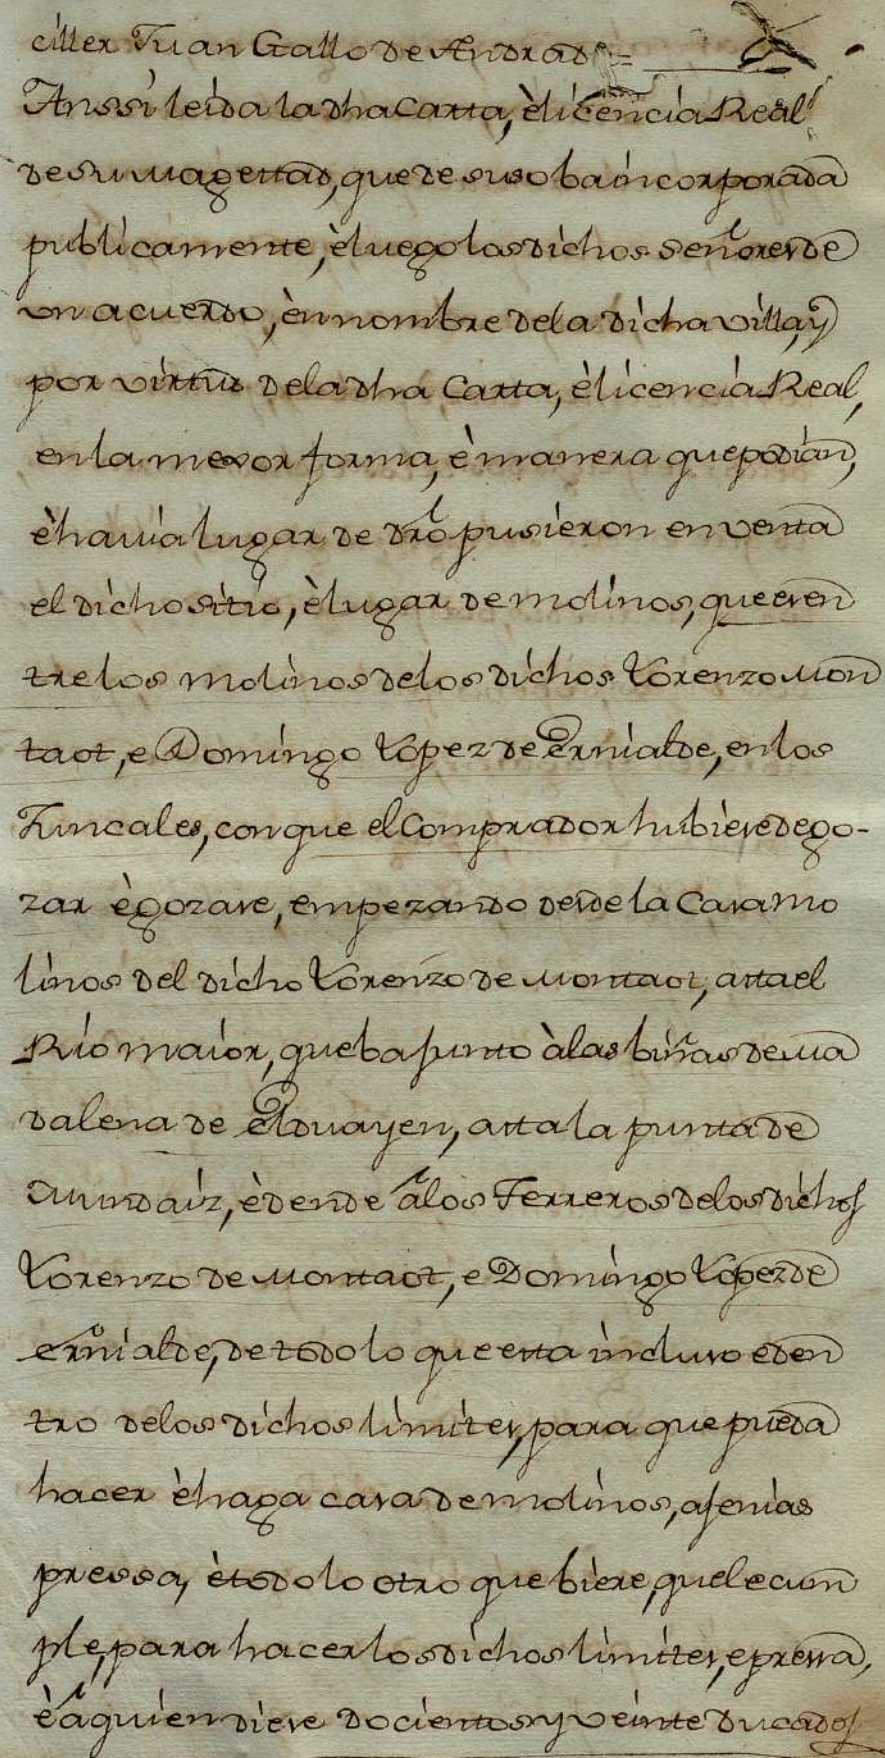 ciller Juan Gallo de Andrad =
Anssi leida la dha carta, è licencia Real
de su magestad, que de suso ba incorporada
publicamente, è luego los dichos señores de
un acuerdo, èn nombre de la dicha villa, y
por virtud de la dha Carta, è licencia Real,
en la mexor forma, è manera que podian,
è havia lugar de dro pusieron en venta
el dicho sitio, è lugar de molinos, que es en
tre los molinos de los dichos Lorenzo Mon
taot, e Domingo Lopez de Ernialde, en los
Juncales, con que el Comprador hubiese de go-
zar è gozase, empezando desde la Casa mo
linos del dicho Lorenzo de Montaot, asta el
Rio maior, que ba junto à las biñas de Ma
dalena de Elduayen, asta la punta de
Mundaiz, è dende à los Ferreros de los dichos
Lorenzo de Montaot, e Domingo Lopez de
erñialde, de todo lo que esta incluso e den
tro de los dichos limites, para que pueda
hacer è haga casa de molinos, asenias
pressa, è todo lo otro que biere, que le cum
ple, para hacer los dichos limites, e pressa,
è à quien diese docientos y veinte ducados